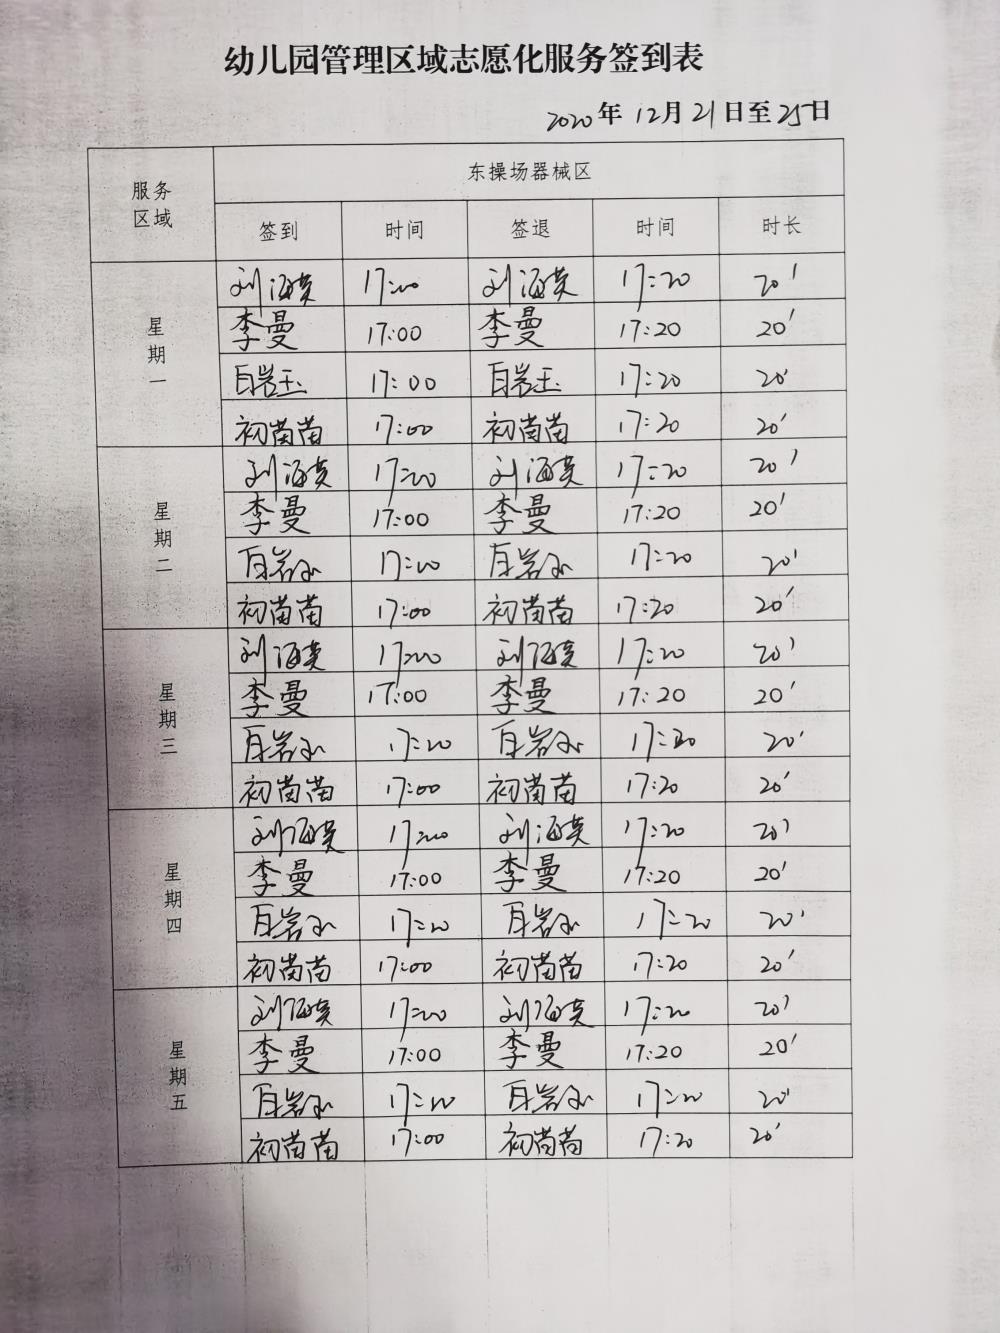 幼儿园管理区域志愿化服务签到表
2020年 12月 21日至 25日
服务区域 东操场器械区
签到 时间 签退 时间 时长
星期一 刘海英 17:00 刘海英 17:20 20'
李曼 17:00 李曼 17:20 20'
白岩玉 17:00 白岩玉 17:20 20'
初苗苗 17:00 初苗苗 17:20 20'
星期二 刘海英 17:00 刘海英 17:20 20'
李曼 17:00 李曼 17:20 20'
白岩玉 17:00 白岩玉 17:20 20'
初苗苗 17:00 初苗苗 17:20 20'
星期三 刘海英 17:00 刘海英 17:20 20'
李曼 17:00 李曼 17:20 20'
白岩玉 17:20 白岩玉 17:20 20'
初苗苗 17:00 初苗苗 17:20 20'
星期四 刘海英 17:00 刘海英 17:20 20'
李曼 17:00 李曼 17:20 20'
白岩玉 17:20 白岩玉 17:20 20'
初苗苗 17:00 初苗苗 17:20 20'
星期五 刘海英 17:00 刘海英 17:20 20'
李曼 17:00 李曼 17:20 20'
白岩玉 17:20 白岩玉 17:20 20'
初苗苗 17:00 初苗苗 17:20 20'